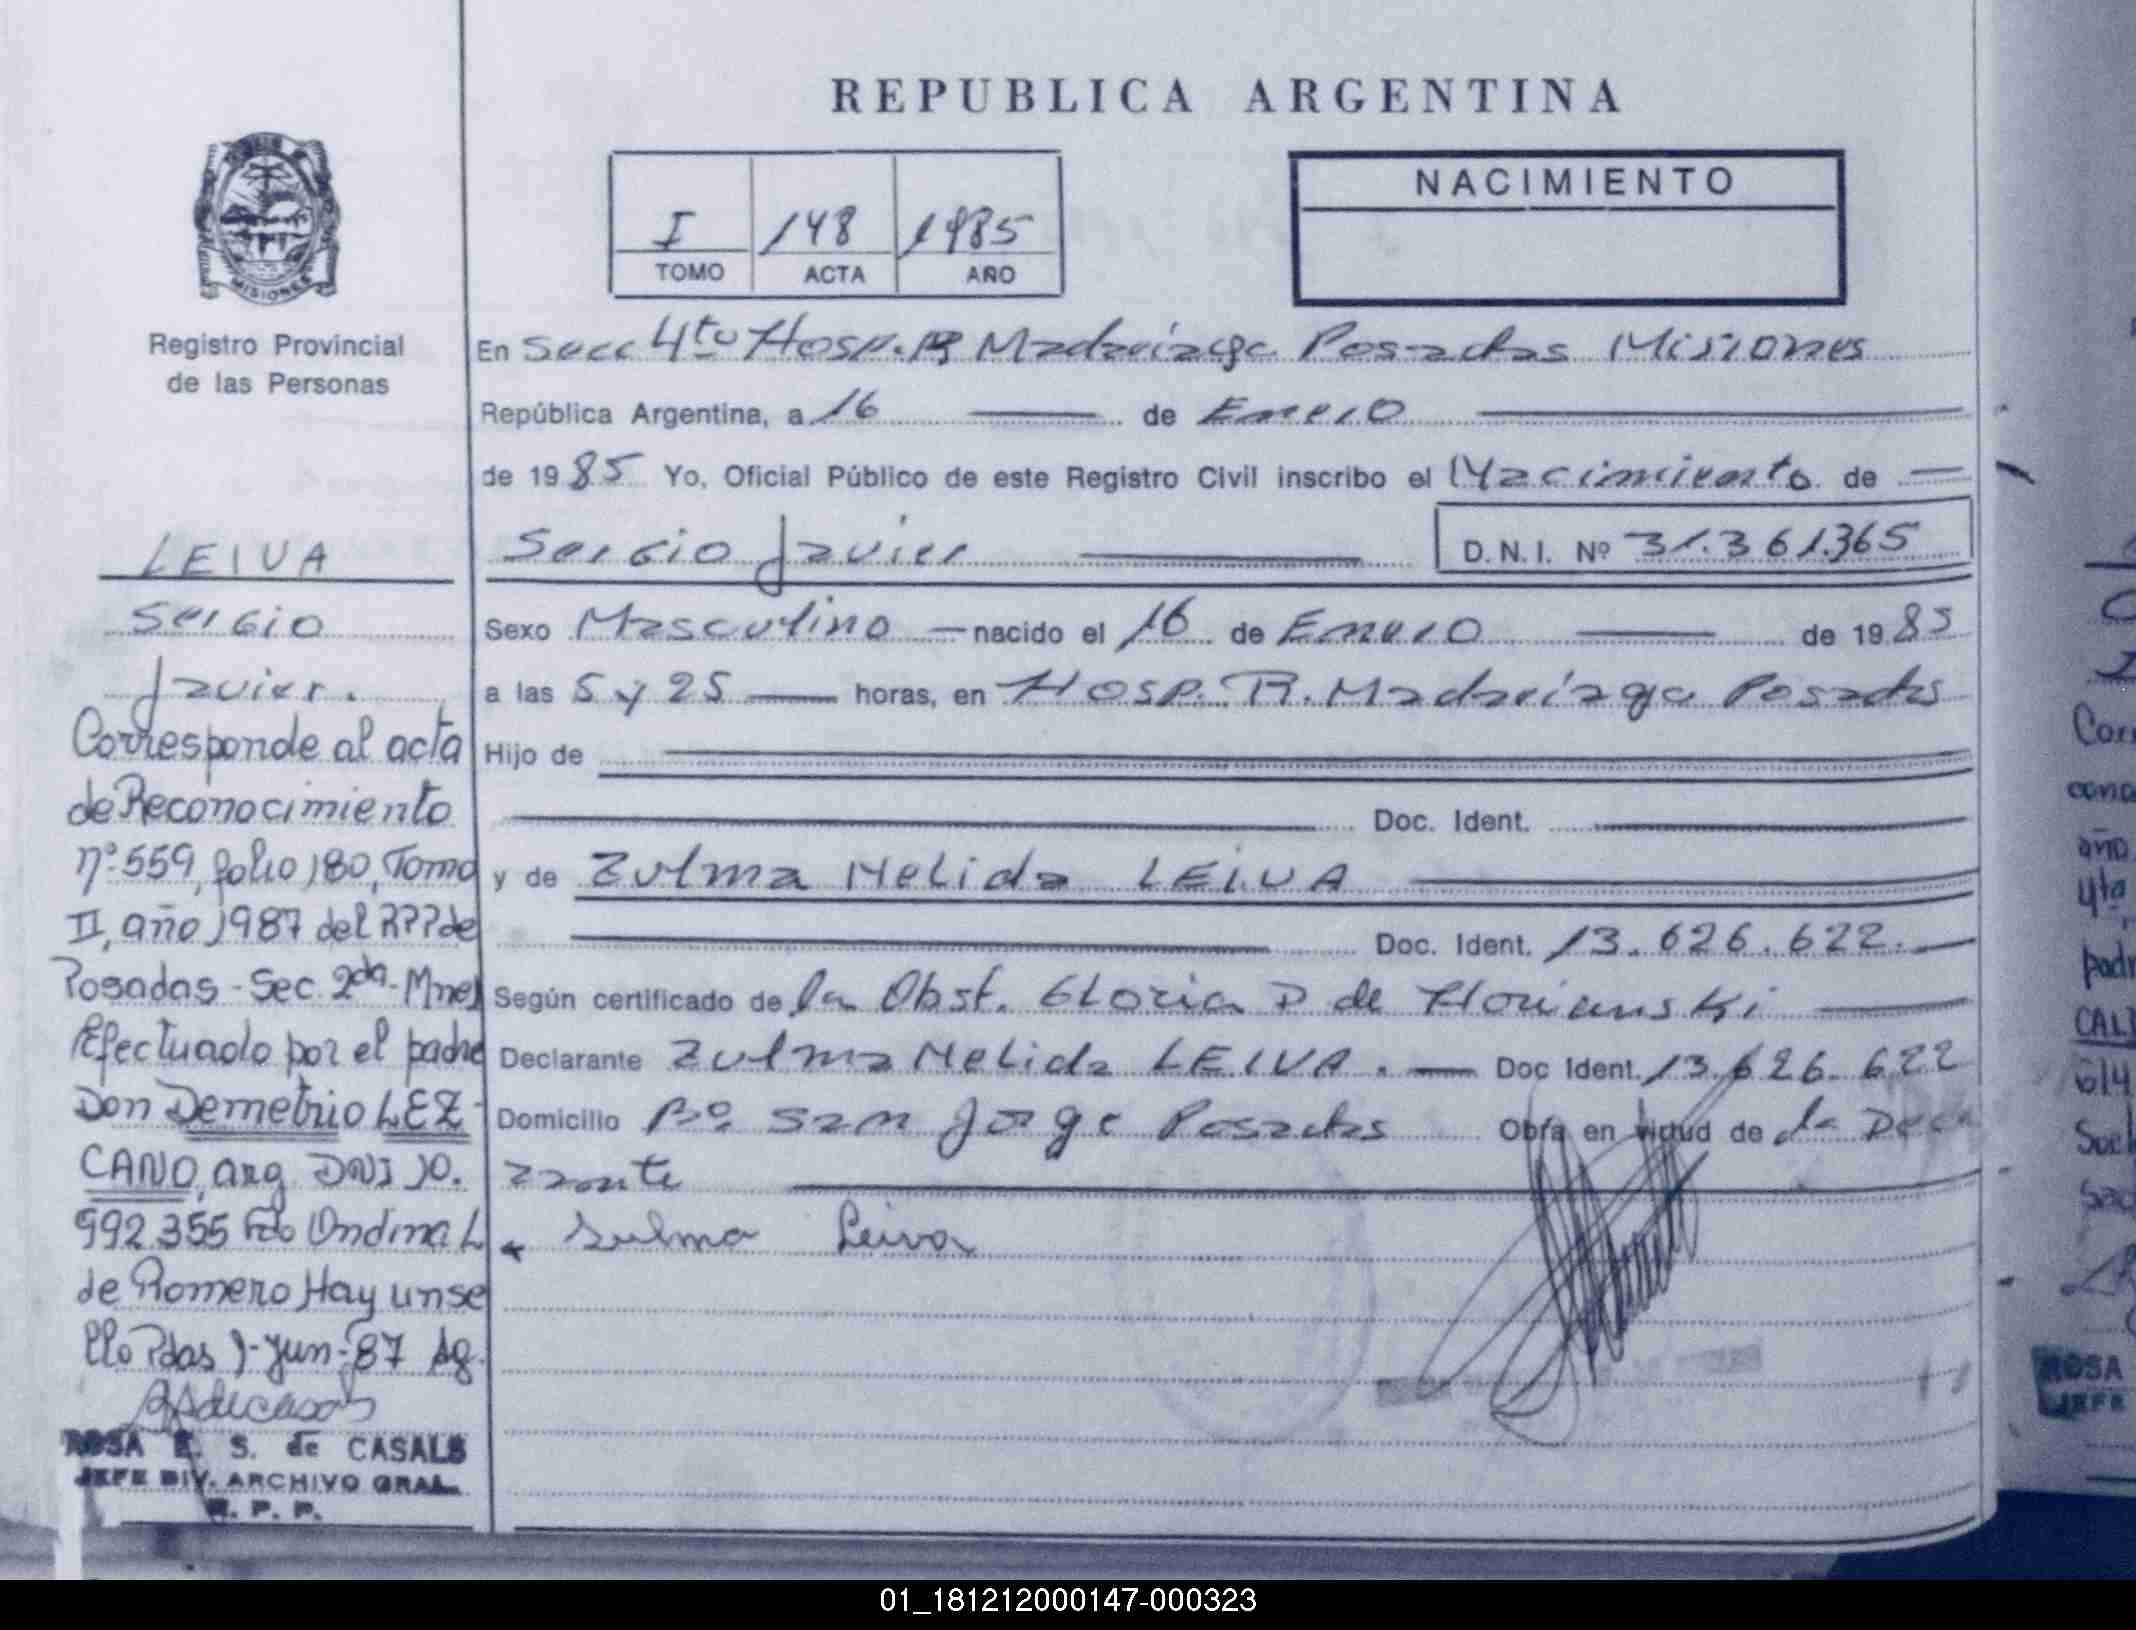 REPUBLICA ARGENTINA
I 148 1985
TOMO ACTA AÑO
NACIMIENTO
MISIONES
Registro Provincial
de las Personas
LEIVA
Sergio
Javier.
Corresponde al acta
de Reconocimiento
nº 559, folio 180, Tomo
II, año 1987 del RPP de
Posadas - Sec 2da - Mnes
Efectuado por el padre
Don Demetrio LEZ-
CANO, arg. DNI 10.
992.355 Fdo Ondina L
de Romero Hay un se
llo Pdas 1-Jun-87 Ag.
ROSA E. S. de CASALS
JEFE DIV. ARCHIVO GRAL.
R. P. P.
En Secc 4to Hosp. R Madariaga Posadas Misiones
República Argentina, a 16 de Enero
de 1985 Yo, Oficial Público de este Registro Civil inscribo el Nacimiento de
Sergio Javier D.N.I. Nº 31.361.365
Sexo Masculino nacido el 16 de Enero de 1985
a las 5 y 25 horas, en Hosp. R. Madariaga Posadas
Hijo de
Doc. Ident.
y de Zulma Nelida LEIVA
Doc. Ident. 13.626.622.
Según certificado de la Obst. Gloria D de
Declarante Zulma Nelida LEIVA. Doc Ident. 13.626.622
Domicilio Bº San Jorge Posadas Obra en virtud de la Decla
rante
Sulma Leiva
ROSA
JEFE
01_181212000147-000323